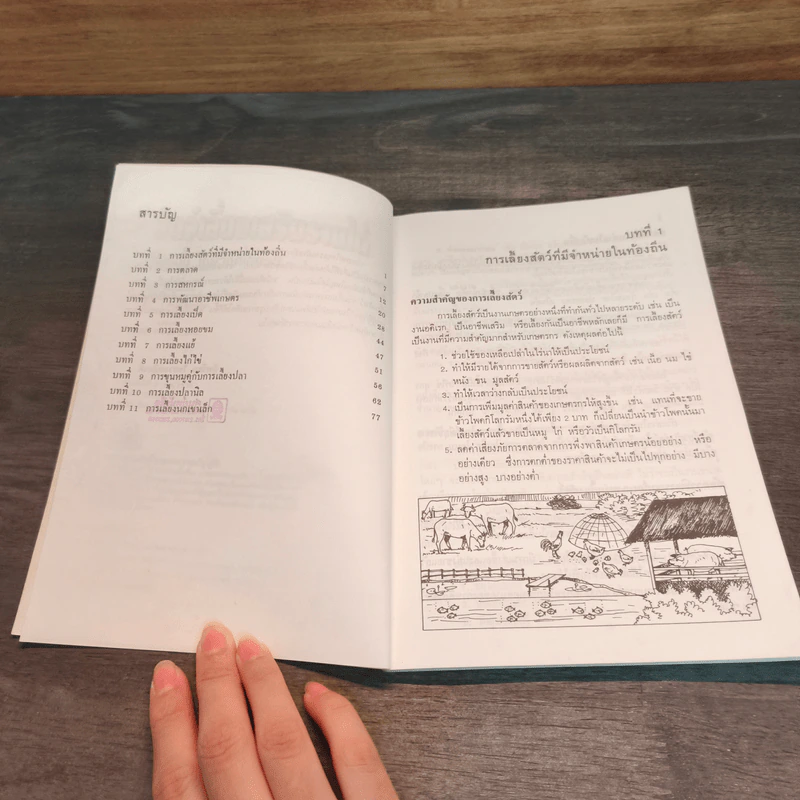 สารบัญ
บทที่ 1 การเลี้ยงสัตว์ที่มีจำหน่ายในท้องถิ่น 1
บทที่ 2 การตลาด 7
บทที่ 3 การสหกรณ์ 12
บทที่ 4 การพัฒนาอาชีพเกษตร 20
บทที่ 5 การเลี้ยงเป็ด 28
บทที่ 6 การเลี้ยงหอยขม 44
บทที่ 7 การเลี้ยงแย้ 47
บทที่ 8 การเลี้ยงไก่ไข่ 51
บทที่ 9 การขุนหมูคู่กับการเลี้ยงปลา 56
บทที่ 10 การเลี้ยงปลานิล 62
บทที่ 11 การเลี้ยงนกเขาเล็ก 77
บทที่ 1
การเลี้ยงสัตว์ที่มีจำหน่ายในท้องถิ่น
ความสำคัญของการเลี้ยงสัตว์
การเลี้ยงสัตว์เป็นงานเกษตรอย่างหนึ่งที่ทำกันทั่วไปหลายระดับ เช่น เป็น
งานอดิเรก เป็นอาชีพเสริม หรือเลี้ยงกันเป็นอาชีพหลักเลยก็มี การเลี้ยงสัตว์
เป็นงานที่มีความสำคัญมากสำหรับเกษตรกร ดังเหตุผลต่อไปนี้
1. ช่วยใช้ของเหลือเปล่าในไร่นาให้เป็นประโยชน์
2. ทำให้มีรายได้จากการขายสัตว์หรือผลผลิตจากสัตว์ เช่น เนื้อ นม ไข่
หนัง ขน มูลสัตว์
3. ทำให้เวลาว่างกลับเป็นประโยชน์
4. เป็นการเพิ่มมูลค่าสินค้าของเกษตรกรให้สูงขึ้น เช่น แทนที่จะขาย
ข้าวโพดกิโลกรัมหนึ่งได้เพียง 2 บาท ก็เปลี่ยนเป็นนำข้าวโพดนั้นมา
เลี้ยงสัตว์แล้วขายเป็นหมู ไก่ หรือวัวเป็นกิโลกรัม
5. ลดค่าเสี่ยงภัยการตลาดจากการพึ่งพาสินค้าเกษตรน้อยอย่าง หรือ
อย่างเดียว ซึ่งการตกต่ำของราคาสินค้าจะไม่เป็นไปทุกอย่าง มีบาง
อย่างสูง บางอย่างต่ำ